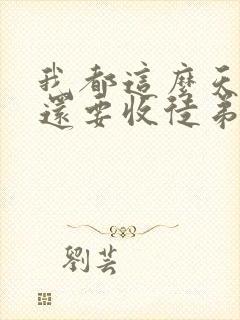 我都這麼天
還要收徒弟
劉芸